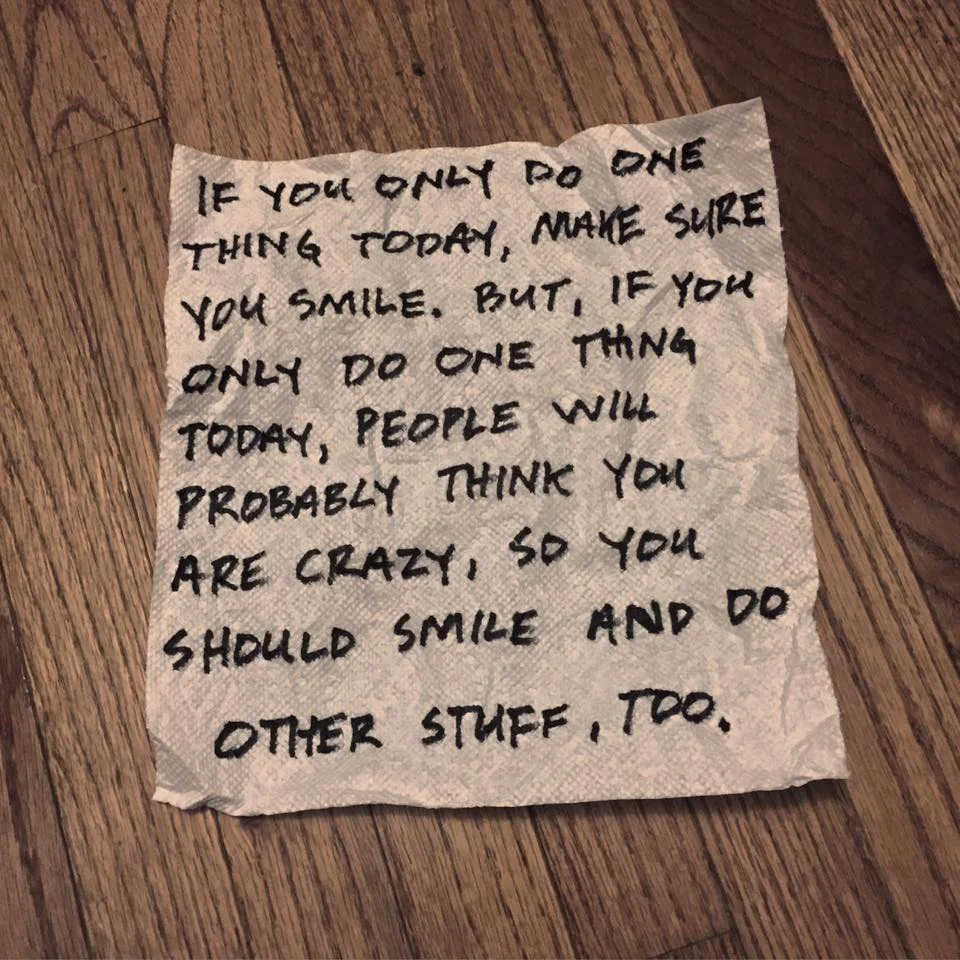 IF YOU ONLY DO ONE
THING TODAY, MAKE SURE
YOU SMILE. BUT, IF YOU
ONLY DO ONE THING
TODAY, PEOPLE WILL
PROBABLY THINK YOU
ARE CRAZY, SO YOU
SHOULD SMILE AND DO
OTHER STUFF, TOO.